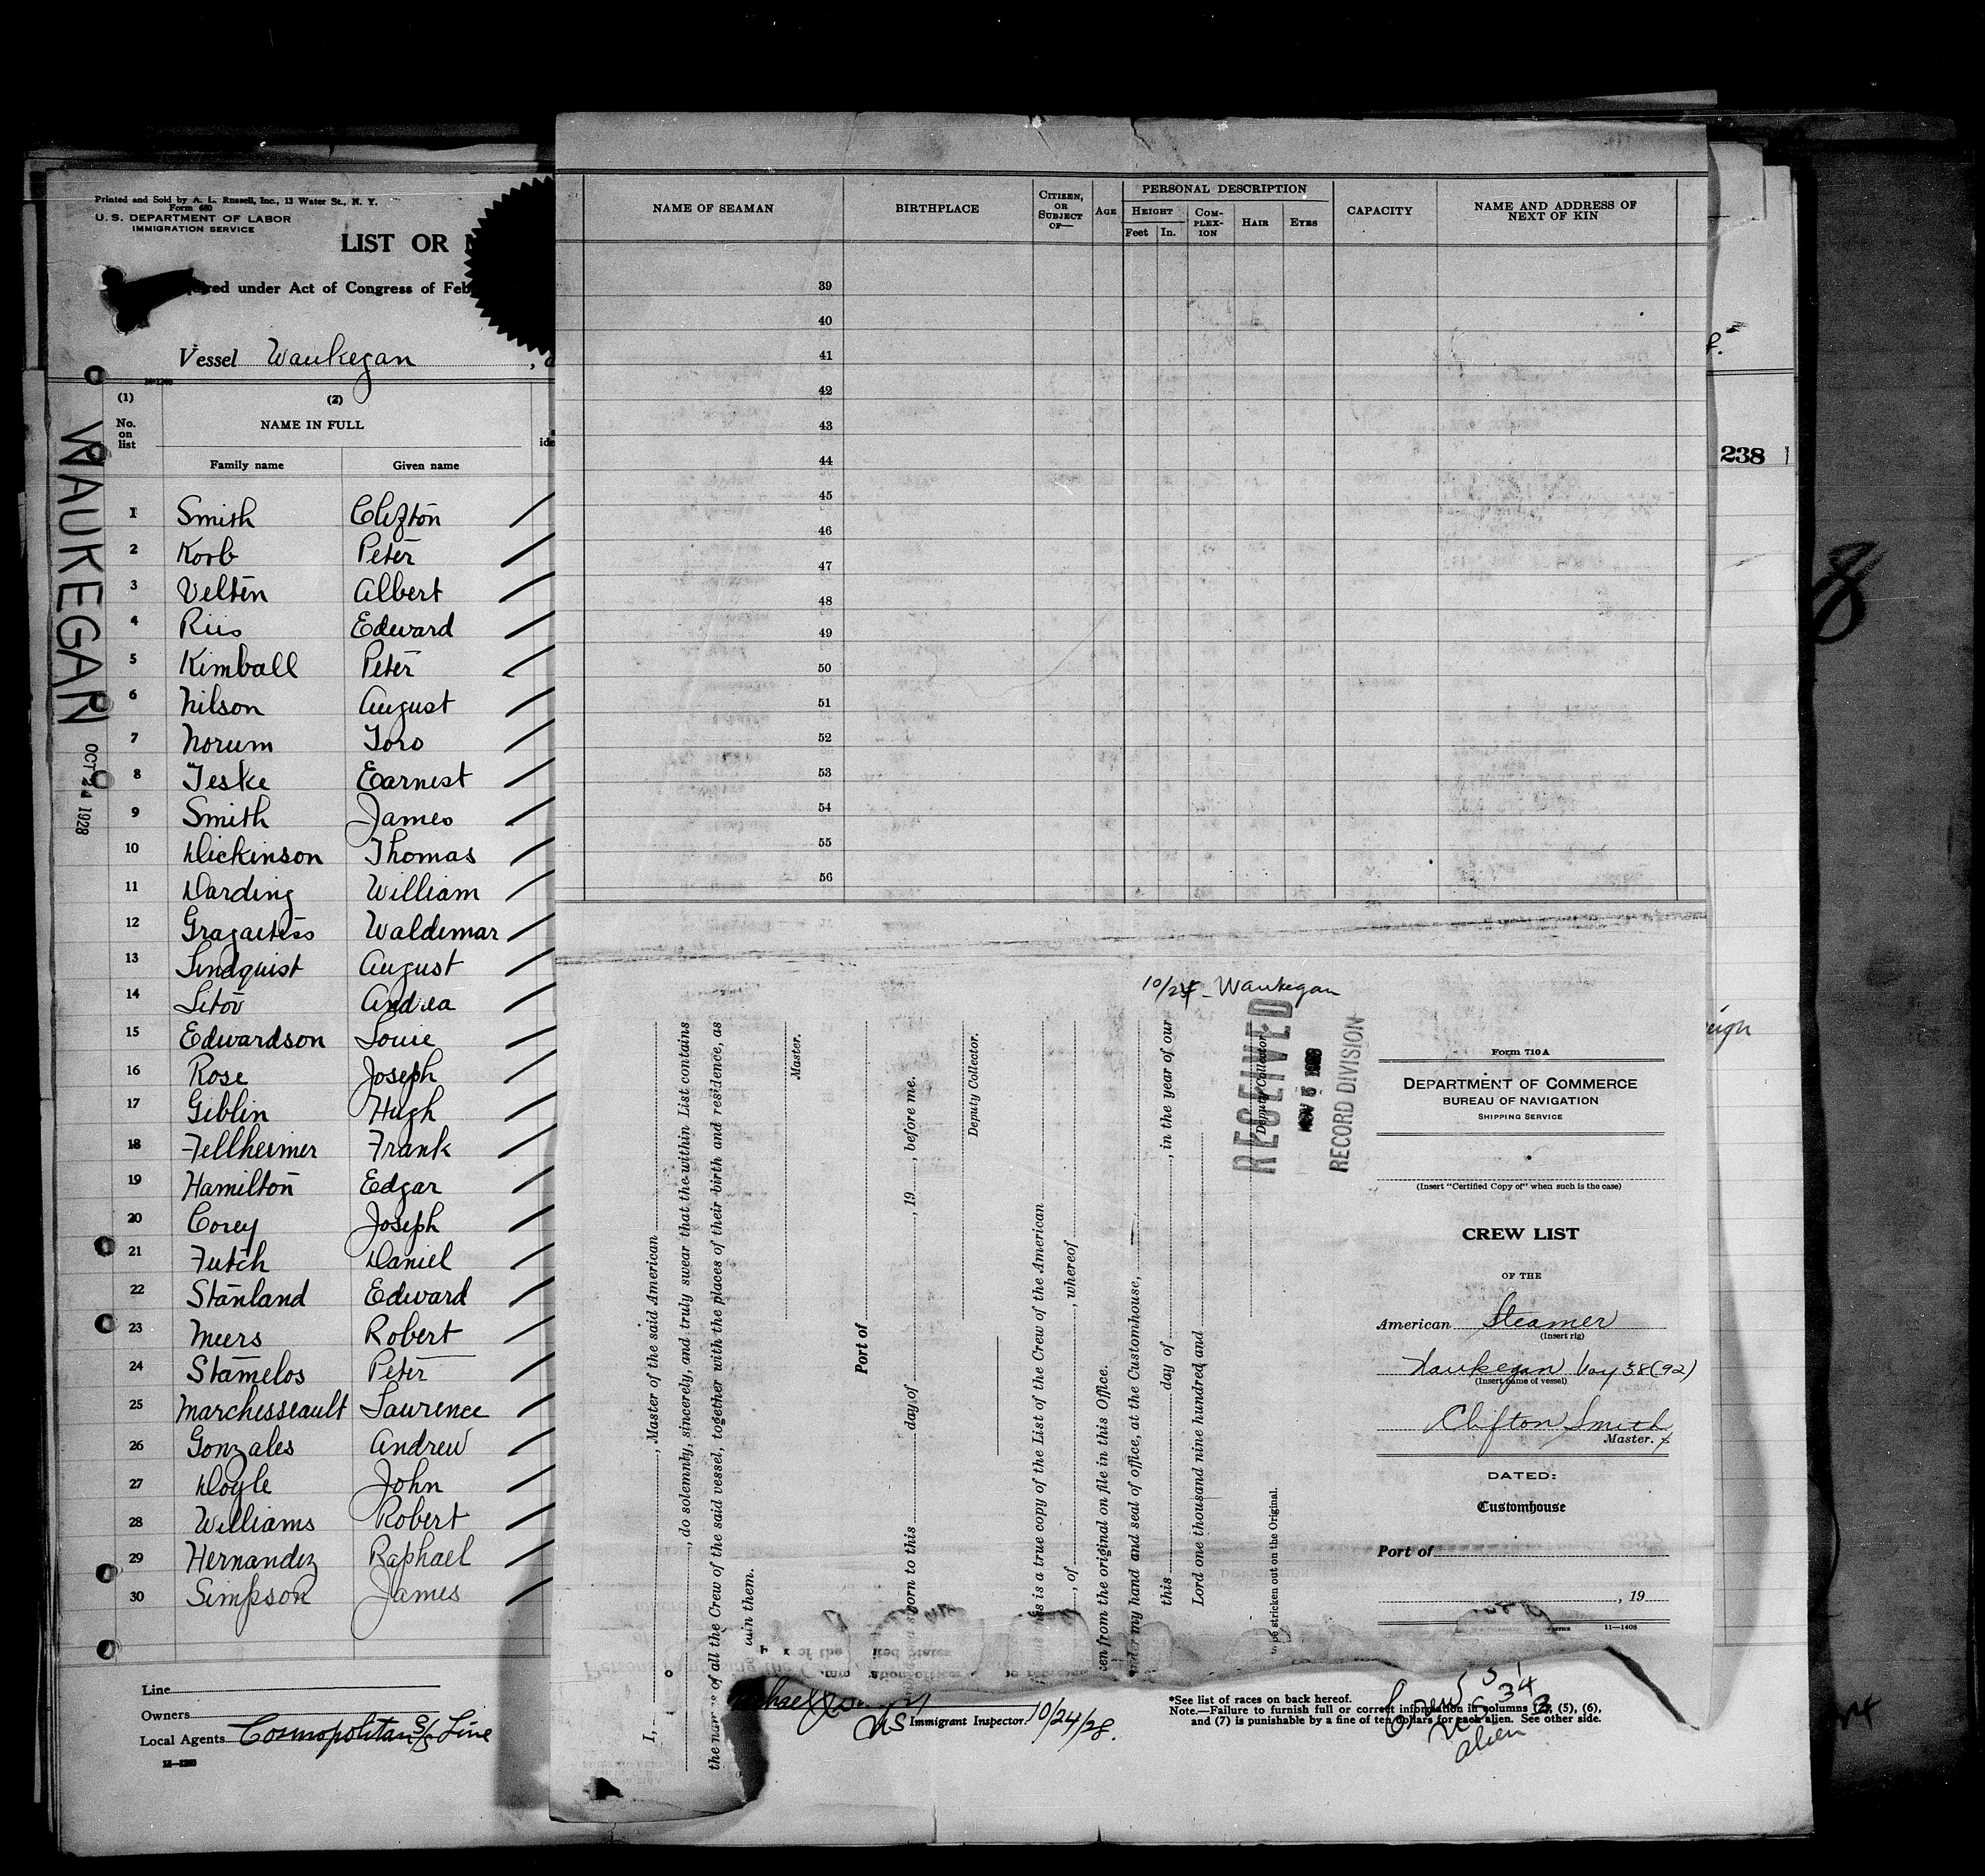 Printed and Sold by A. L. Russell, Inc., 13 Water St., N. Y.
Form 680
U. S. DEPARTMENT OF LABOR
IMMIGRATION SERVICE
LIST OR
under Act of Congress of Feb
Vessel Waukegan
WAUKEGAN
OCT 24 1928
(1) (2)
No. on list
NAME IN FULL
Family name Given name
1 Smith Clifton
2 Korb Peter
3 Velten Albert
4 Riis Edward
5 Kimball Peter
6 Nilson August
7 Norum Toro
8 Teske Earnest
9 Smith James
10 Dickinson Thomas
11 Darding William
12 Waldemar
13 Lindquist August
14 Litov Andrea
15 Edwardson Louie
16 Rose Joseph
17 Giblin Hugh
18 Fellheimer Frank
19 Hamilton Edgar
20 Corey Joseph
21 Futch Daniel
22 Stanland Edward
23 Meers Robert
24 Stamelos Peter
25 Marchesseault Lawrence
26 Gonzales Andrew
27 Doyle John
28 Williams Robert
29 Hernandez Raphael
30 Simpson James
Line
Owners
Local Agents Cosmopolitan S/S Line
NAME OF SEAMAN
BIRTHPLACE
CITIZEN, OR SUBJECT OF—
AGE
PERSONAL DESCRIPTION
HEIGHT
Feet In.
COMPLEXION
HAIR
EYES
CAPACITY
NAME AND ADDRESS OF NEXT OF KIN
39
40
41
42
43
44
45
46
47
48
49
50
51
52
53
54
55
56
238
8
10/24 - Waukegan
I, , Master of the said American
, do solemnly, sincerely, and truly swear that the within List contains
the names of all the Crew of the said vessel, together with the places of their birth and residence, as
Master.
Port of
born to this day of , 19 , before me.
Deputy Collector.
is a true copy of the List of the Crew of the American
, of , whereof
from the original on file in this Office.
my hand and seal of office, at the Customhouse,
this day of , in the year of our
Lord one thousand nine hundred and
Deputy Collector.
be stricken out on the Original.
RECEIVED
NOV 5
RECORD DIVISION
Form 710A
DEPARTMENT OF COMMERCE
BUREAU OF NAVIGATION
SHIPPING SERVICE
(Insert "Certified Copy of" when such is the case)
CREW LIST
OF THE
American Steamer
(Insert rig)
Waukegan Voy 38 (92)
(Insert name of vessel)
Clifton Smith
Master.
DATED:
Customhouse
Port of
, 19
11—1408
Immigrant Inspector. 10/24/28.
*See list of races on back hereof.
Note.—Failure to furnish full or correct information in columns (3), (5), (6),
and (7) is punishable by a fine of ten dollars for each alien. See other side.
Alien